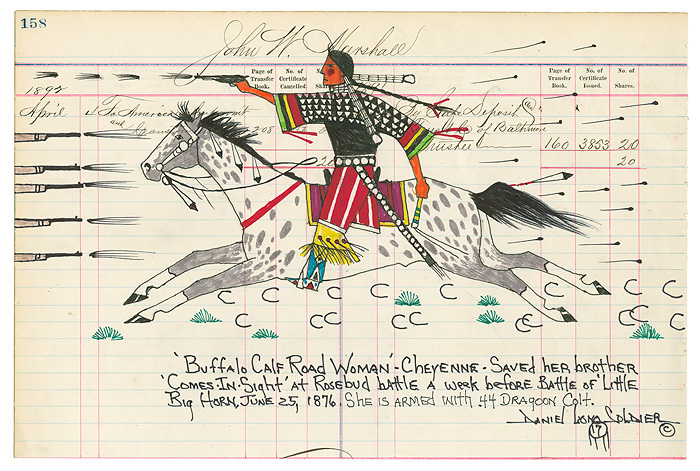 158
John W. Marshall
Page of Transfer Book.
No. of Certificate Cancelled.
No. of Shares.
Page of Transfer Book.
No. of Certificate Issued.
No. of Shares.
1892
April
To
and
208
Safe Deposit
of Baltimore
160 3853 20
20
20
'Buffalo Calf Road Woman' - Cheyenne - Saved her brother
'Comes-In-Sight' at Rosebud battle a week before Battle of Little
Big Horn, June 25, 1876. She is armed with .44 Dragoon Colt.
Daniel Long Soldier ©
17